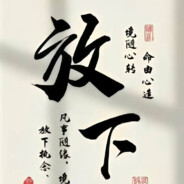 命由心造
境随心转
放下
凡事随缘，境
放下执念，